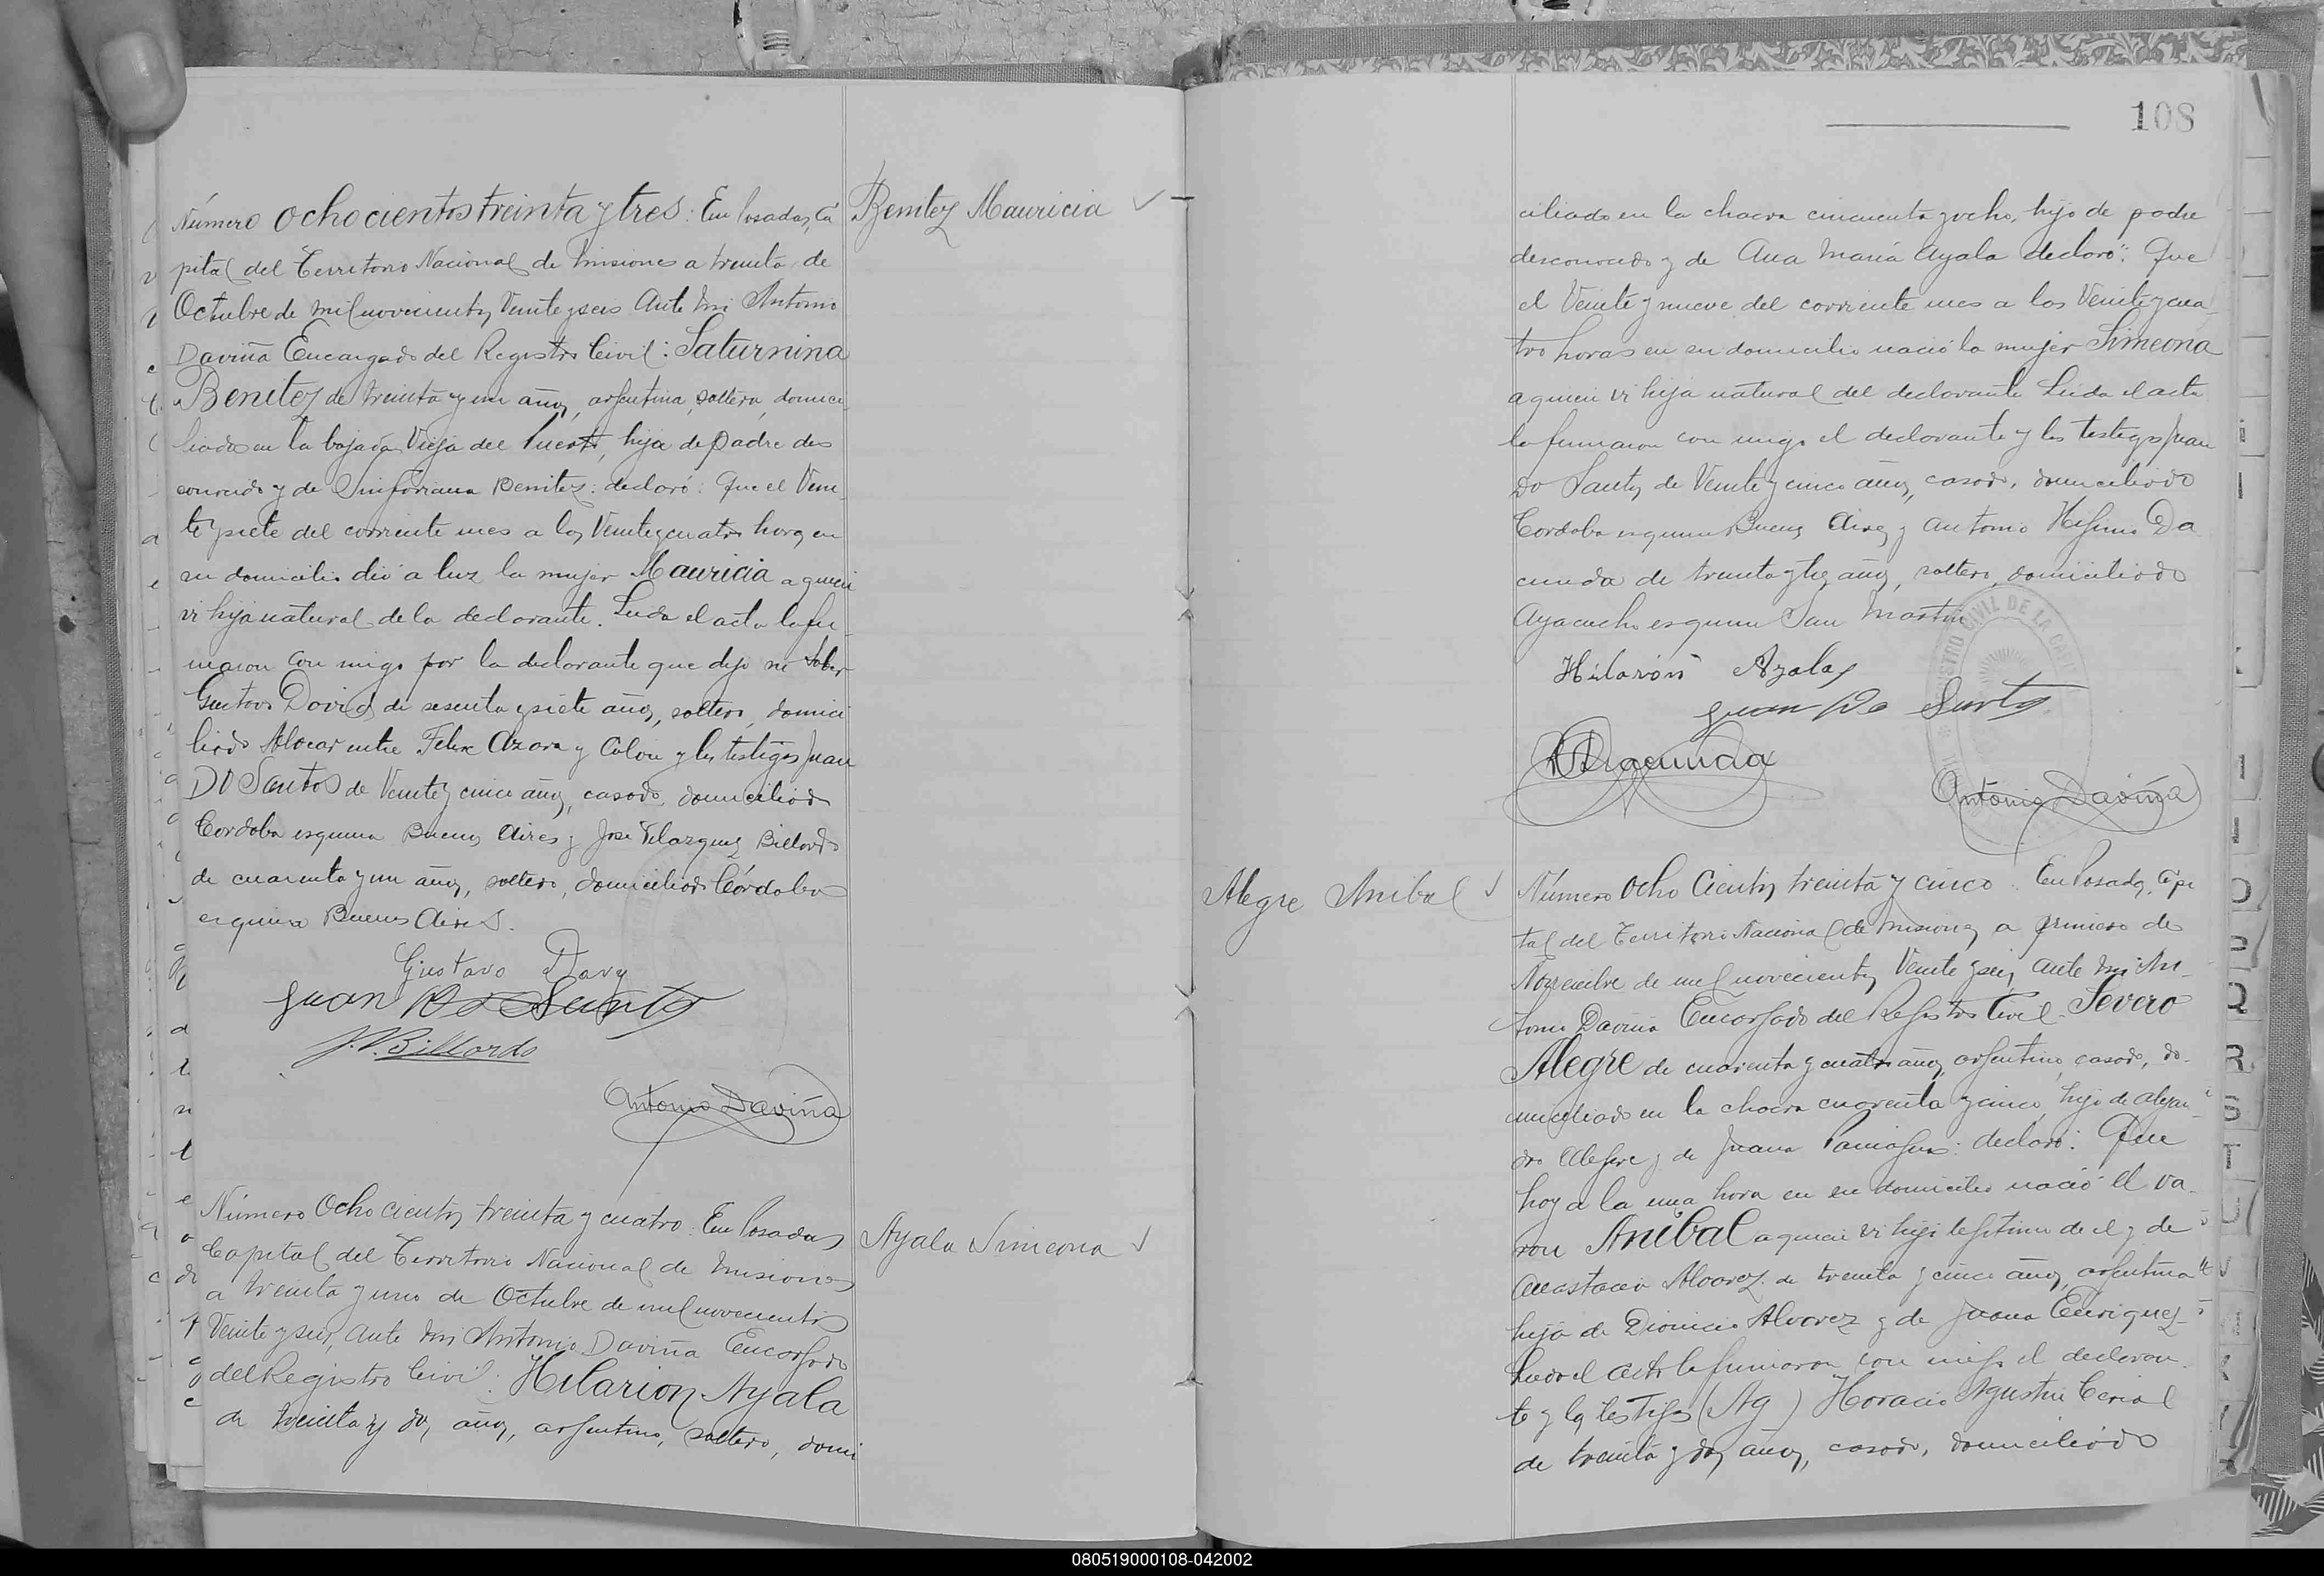 Número ochocientos treinta y tres: En Posadas, Ca
pital del Territorio Nacional de Misiones a treinta de
Octubre de mil novecientos Veinte y seis Ante mi Antonio
Daviña Encargado del Registro Civil: Saturnina
Benitez de treinta y un años, argentina, soltera, domici
liada en la bajada Vieja del Puerto, hija de padre des
conocido y de Sinforiana Benitez: declaró: Que el Vein
te y siete del corriente mes a las Veinte y cuatro horas en
su domicilio dió a luz la mujer Mauricia a quien
vi hija natural de la declarante. Leida el acta la fir
maron con migo por la declarante que dijo no saber
Gustavo David de sesenta y siete años, soltero, domici
liado Alvear entre Felix Azara y Colon y los testigos Juan
Do Santos de Veinte y cinco años, casado, domiciliado
Cordoba esquina Buenos Aires y José Velazquez Billordo
de cuarenta y un años, soltero, domiciliado Córdoba
esquina Buenos Aires.
Gustavo Davy
Juan Do Santos
J.V. Billordo
Antonio Daviña
Benitez Mauricia
Número Ocho cientos treinta y cuatro: En Posadas
Capital del Territorio Nacional de Misiones
a treinta y uno de Octubre de mil novecientos
Veinte y seis, ante mi Antonio Daviña Encargado
del Registro Civil: Hilarion Ayala
de treinta y dos años, argentino, soltero, domi
Ayala Simeona
108
ciliado en la chacra cincuenta y ocho, hijo de padre
desconocido y de Ana Maria Ayala declaró: Que
el Veinte y nueve del corriente mes a las Veinte y cua
tro horas en su domicilio nació la mujer Simeona
a quien vi hija natural del declarante Leida el acta
la firmaron con migo el declarante y los testigos Juan
Do Santos de Veinte y cinco años, casado, domiciliado
Cordoba esquina Buenos Aires y Antonio Higinio Da
cunda de treinta y tres años, soltero, domiciliado
Ayacucho esquina San Martin
Hilarión Ayala
Juan Do Santos
Antonio Daviña
Alegre Anibal
Número Ocho Cientos treinta y cinco: En Posadas, Capi
tal del Territorio Nacional de Misiones a primero de
Noviembre de mil novecientos Veinte y seis, ante mi An
tonio Daviña Encargado del Registro Civil: Severo
Alegre de cuarenta y cuatro años, argentino, casado, do
miciliado en la chacra cuarenta y cinco, hijo de Alejan
dro Alegre y de Juana Paniagua: declaró: Que
hoy a la una hora en su domicilio nació el va
ron Anibal a quien vi hijo legitimo de el y de
Anastacia Alvarez de treinta y cinco años, argentina
hija de Dionicio Alvarez y de Juana Enriquez
Leida el acta la firmaron con migo el declaran
te y los testigos (Ag) Horacio Agustin
de treinta y dos años, casado, domiciliado
080519000108-042002